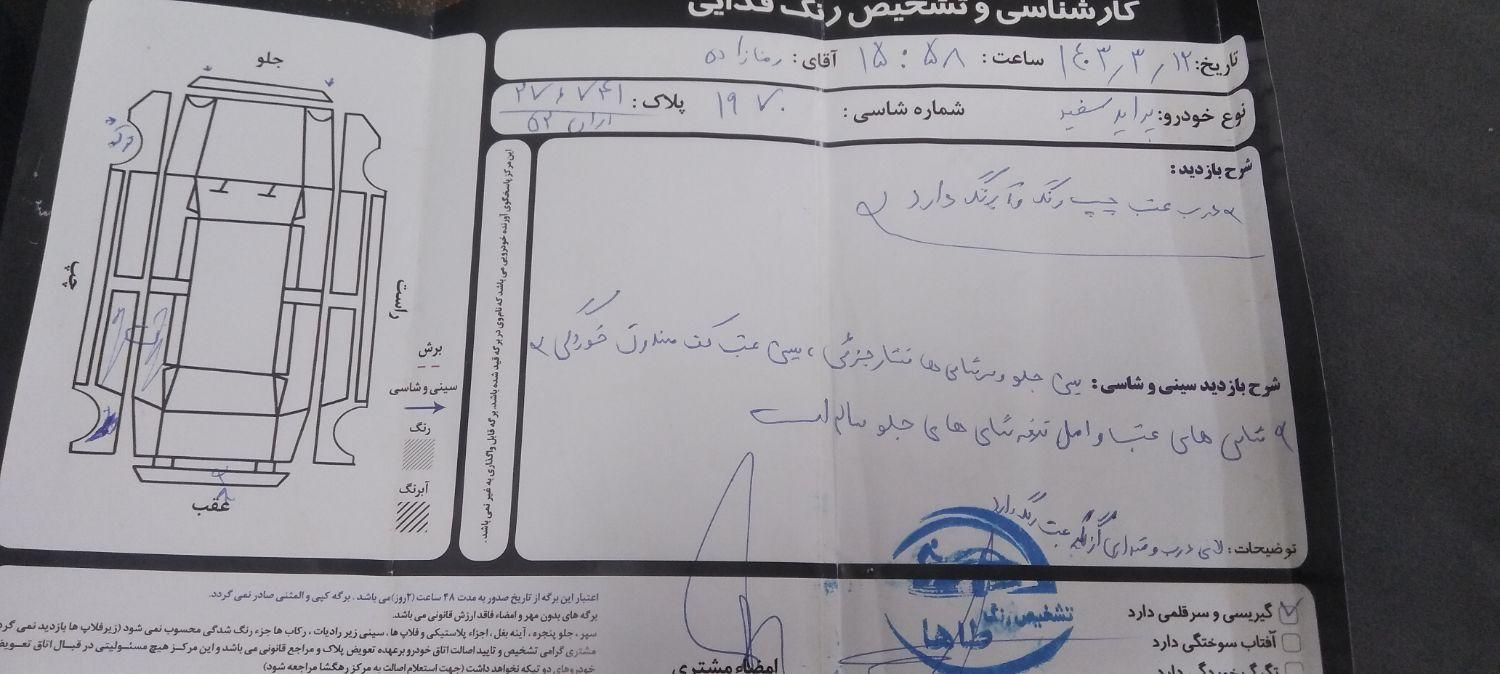 کارشناسی و تشخیص رنگ فدایی
تاریخ: ۱۴۰۳٫۳٫۱۲ ساعت: ۱۵:۵۸ آقای: رضازاده
نوع خودرو: پراید سفید شماره شاسی: ۱۹۷۰ پلاک: ۷۴۱
ایران ۵۲
شرح بازدید:
درب عقب چپ رنگ و آبرنگ دارد
شرح بازدید سینی و شاسی: سینی جلو و سرشاسی ها فشار جزئی، سینی عقب کف صندوق خوردگی
شاسی های عقب و اصل شاسی های جلو سالم است
توضیحات: لای درب و گلگیر عقب رنگ دارد
این مرکز پاسخگوی آورنده خودرویی می باشد که نام وی در برگه قید شده باشد. برگه قابل واگذاری به غیر نمی باشد.
جلو
چپ
راست
عقب
برش
سینی و شاسی
رنگ
آبرنگ
تشخیص رنگ
طاها
گریسی و سرقلمی دارد
آفتاب سوختگی دارد
تگرگ خوردگی دارد
اعتبار این برگه از تاریخ صدور به مدت ۴۸ ساعت (۲روز) می باشد. برگه کپی و المثنی صادر نمی گردد.
برگه های بدون مهر و امضاء فاقد ارزش قانونی می باشد.
سپر، جلو پنجره، آینه بغل، اجزاء پلاستیکی و فلاپ ها، سینی زیر رادیات، رکاب ها جزء رنگ شدگی محسوب نمی شود (زیر فلاپ ها بازدید نمی گردد
مشتری گرامی تشخیص و تایید اصالت اتاق خودرو برعهده تعویض پلاک و مراجع قانونی می باشد و این مرکز هیچ مسئولیتی در قبال اتاق تعویض
خودروهای دو تیکه نخواهد داشت (جهت استعلام اصالت به مرکز رهگشا مراجعه شود)
امضاء مشتری